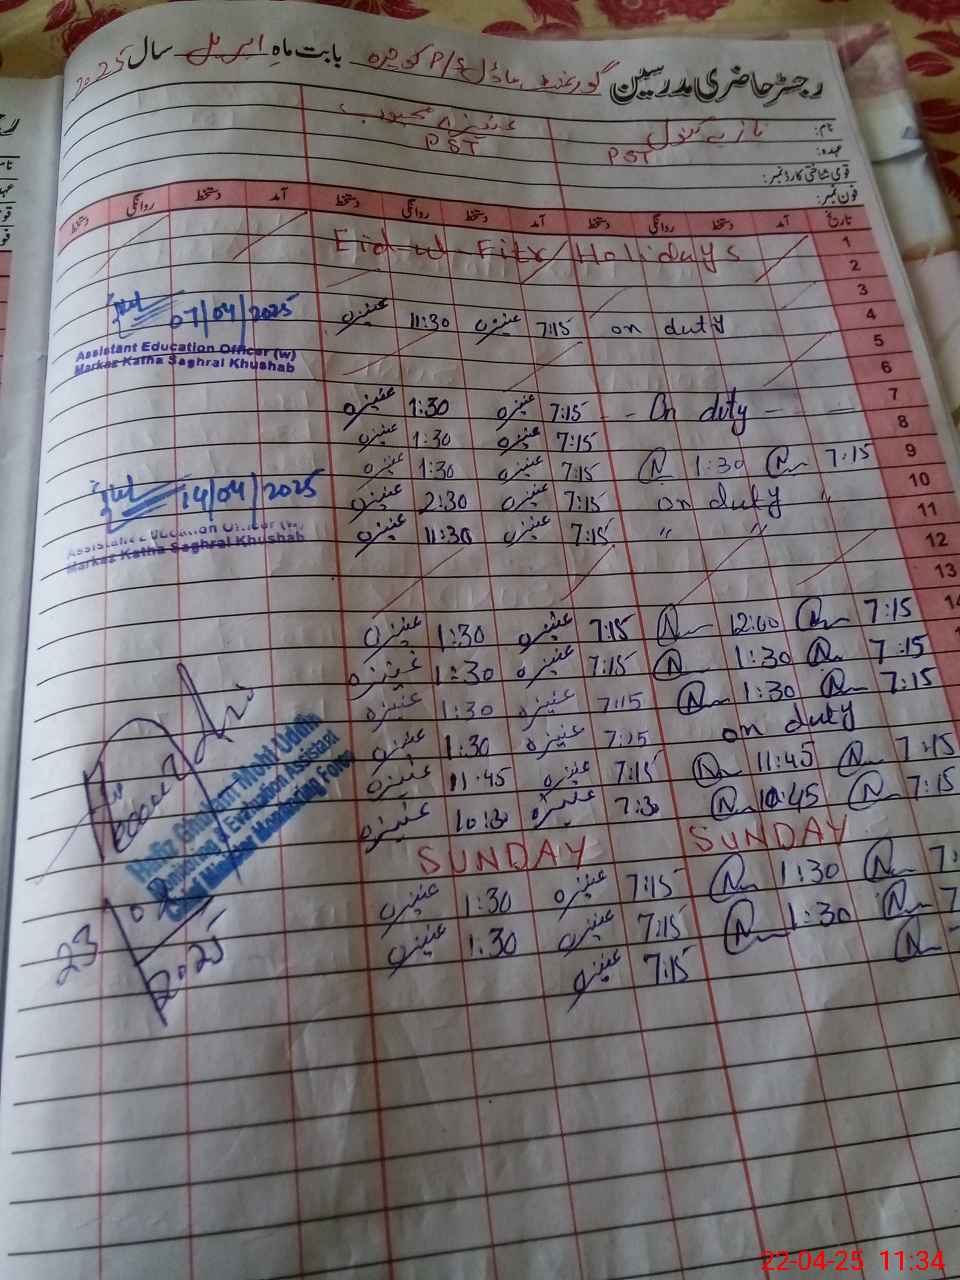 رجسٹر حاضری مدرسین گورنمنٹ ماڈل P/S بابت ماہ اپریل سال 2025
نام: نازیہ کنول محبوب
عہدہ: PST PST
قومی شناختی کارڈ نمبر:
فون نمبر:
تاریخ آمد دستخط روانگی دستخط آمد دستخط روانگی دستخط آمد دستخط روانگی دستخط
1 Eid-ul-Fitr Holidays
2
3
4 on duty 7:15 عنیزہ 11:30 عنیزہ
07/04/2025
5
Assistant Education Officer (w)
Markaz Katha Saghral Khushab
6
7 - On duty - 7:15 عنیزہ 1:30 عنیزہ
8 7:15 عنیزہ 1:30 عنیزہ
9 7:15 1:30 7:15 عنیزہ 1:30 عنیزہ
10 " on duty 7:15 عنیزہ 2:30 عنیزہ
14/04/2025
11 " " 7:15 عنیزہ 11:30 عنیزہ
Assistant Education Officer (w)
Markaz Katha Saghral Khushab
12
13
14 7:15 12:00 7:15 عنیزہ 1:30 عنیزہ
7:15 1:30 7:15 عنیزہ 1:30 عنیزہ
7:15 1:30 7:15 عنیزہ 1:30 عنیزہ
on duty 7:15 عنیزہ 1:30 عنیزہ
7:15 11:45 7:15 عنیزہ 11:45 عنیزہ
7:15 10:45 7:30 عنیزہ 10:30 عنیزہ
Hafiz Ghulam Mohi Uddin
Monitoring & Evaluation Assistant
Chief Minister Monitoring Force
SUNDAY SUNDAY
7: 1:30 7:15 عنیزہ 1:30 عنیزہ
7 1:30 7:15 عنیزہ 1:30 عنیزہ
7:15 عنیزہ
23
2025
22-04-25 11:34